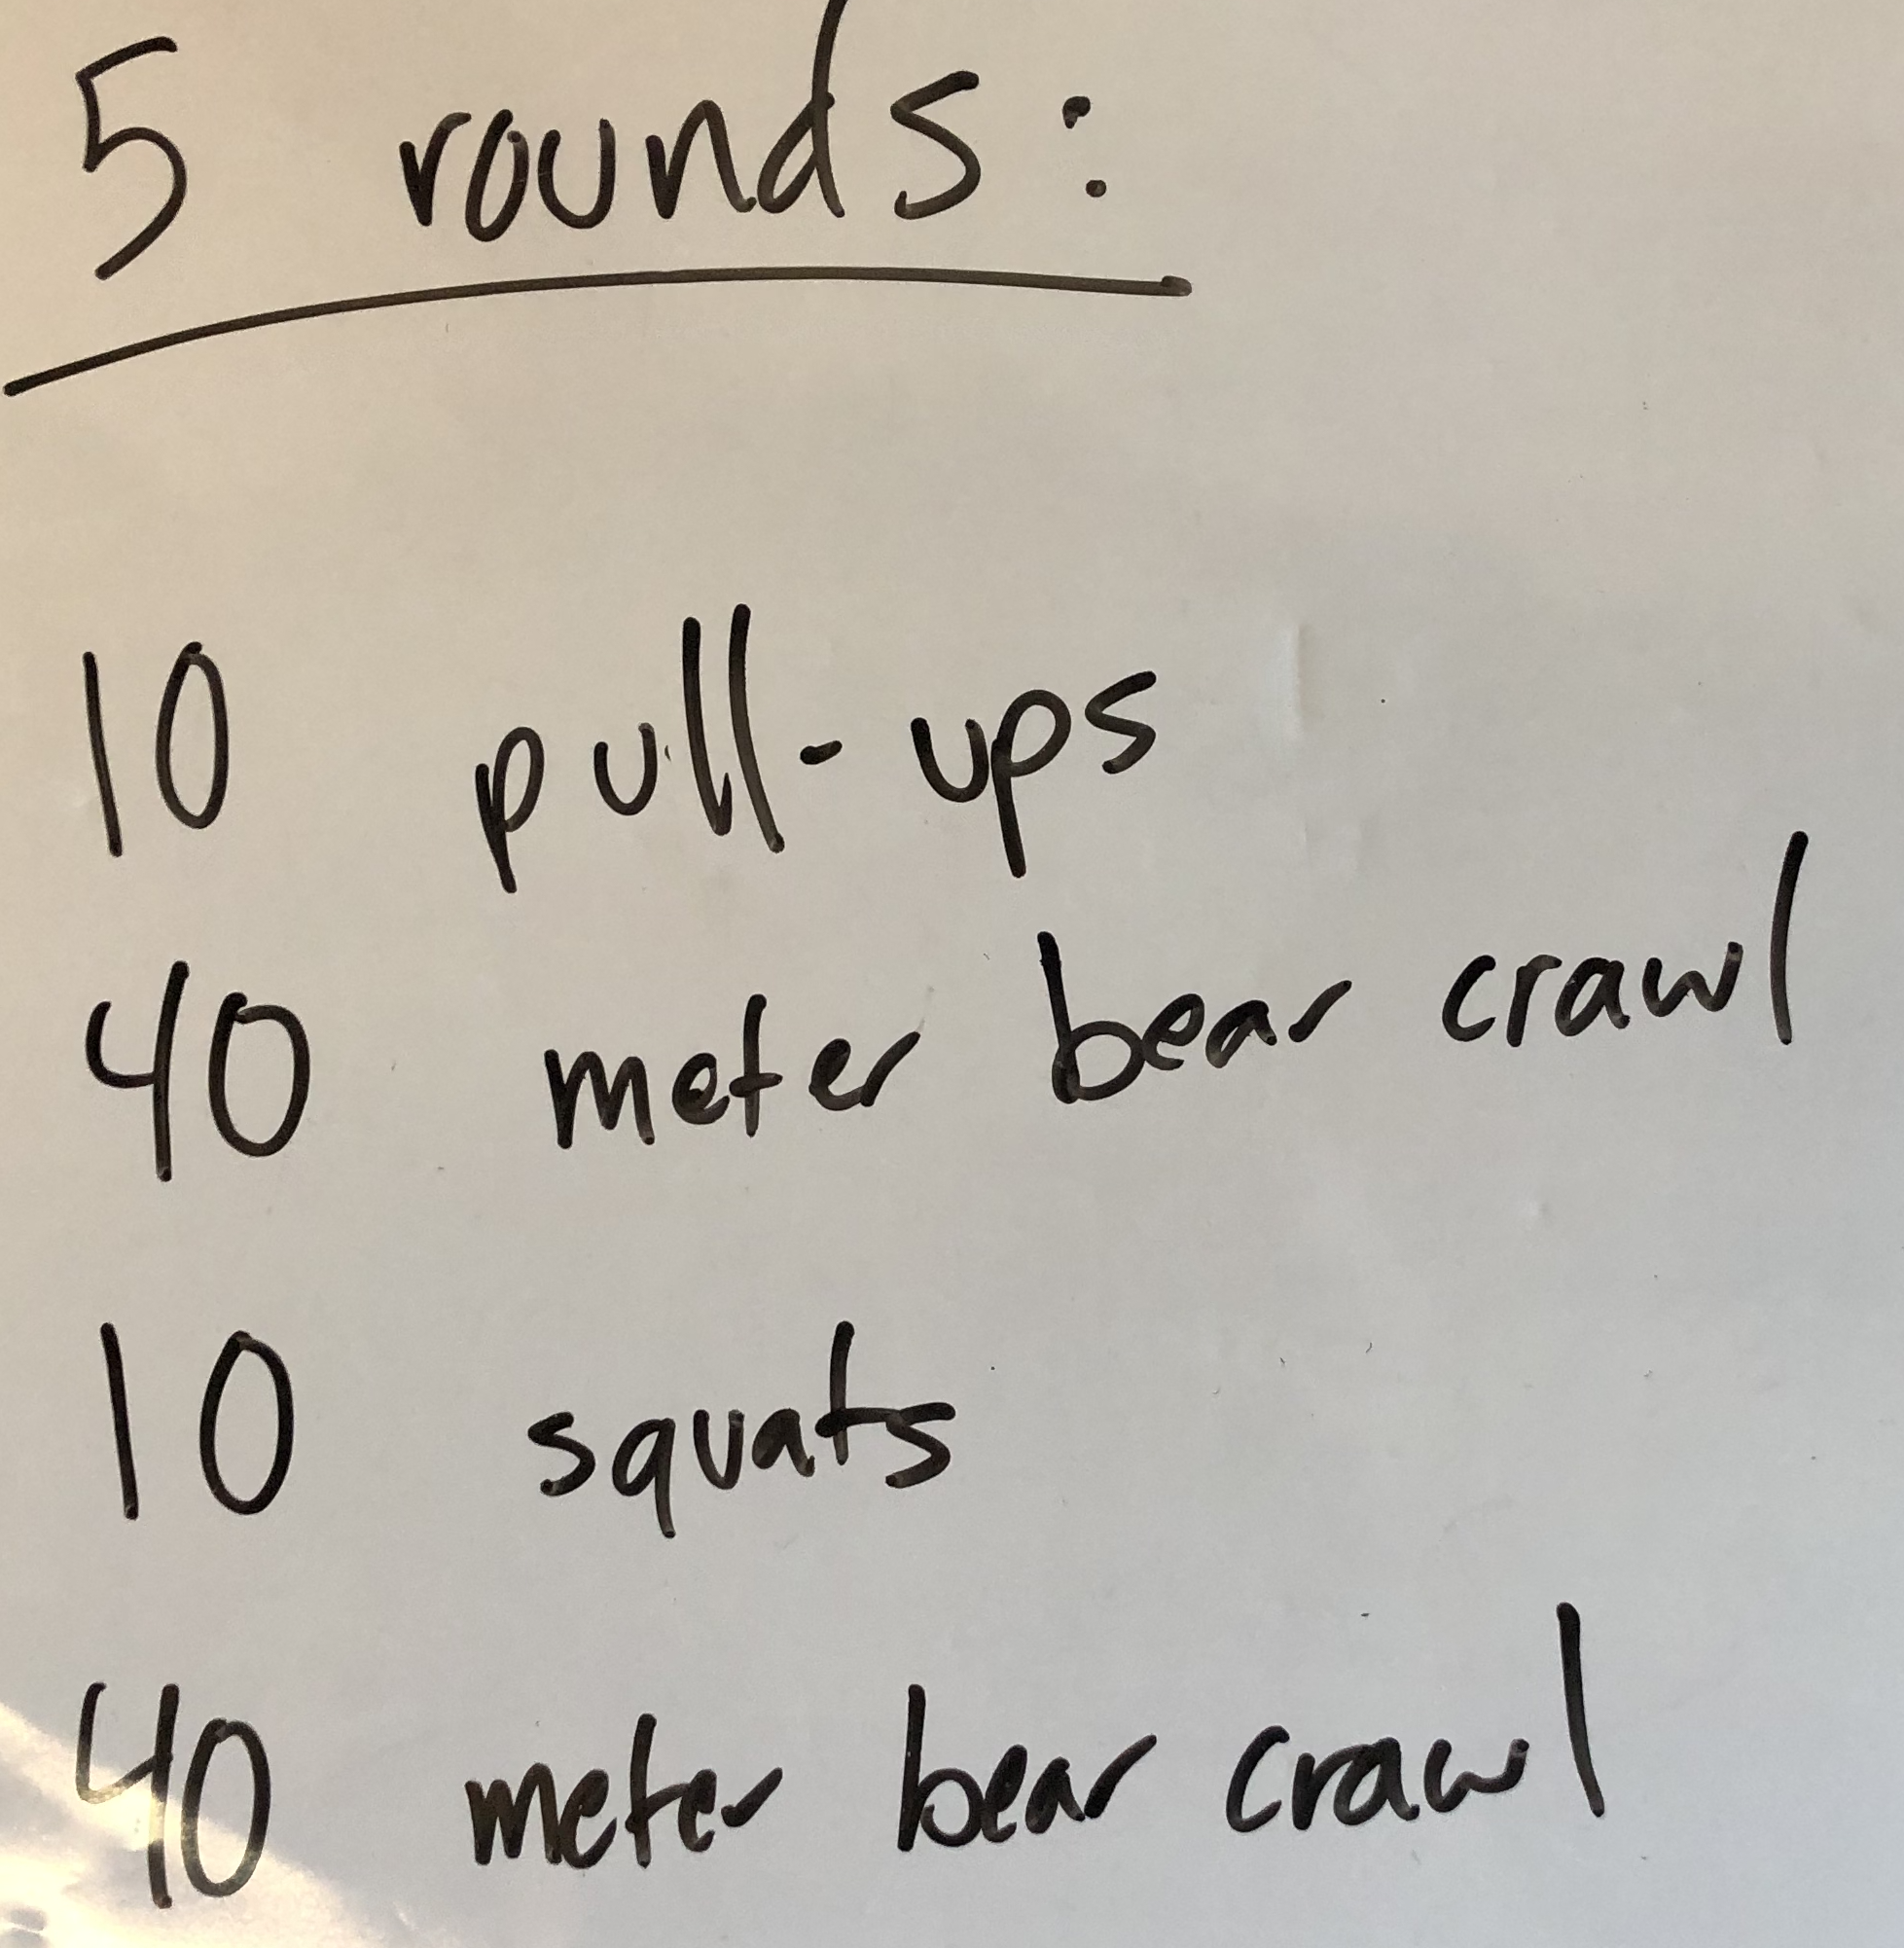 5 rounds:
10 pull-ups
40 meter bear crawl
10 squats
40 meter bear crawl